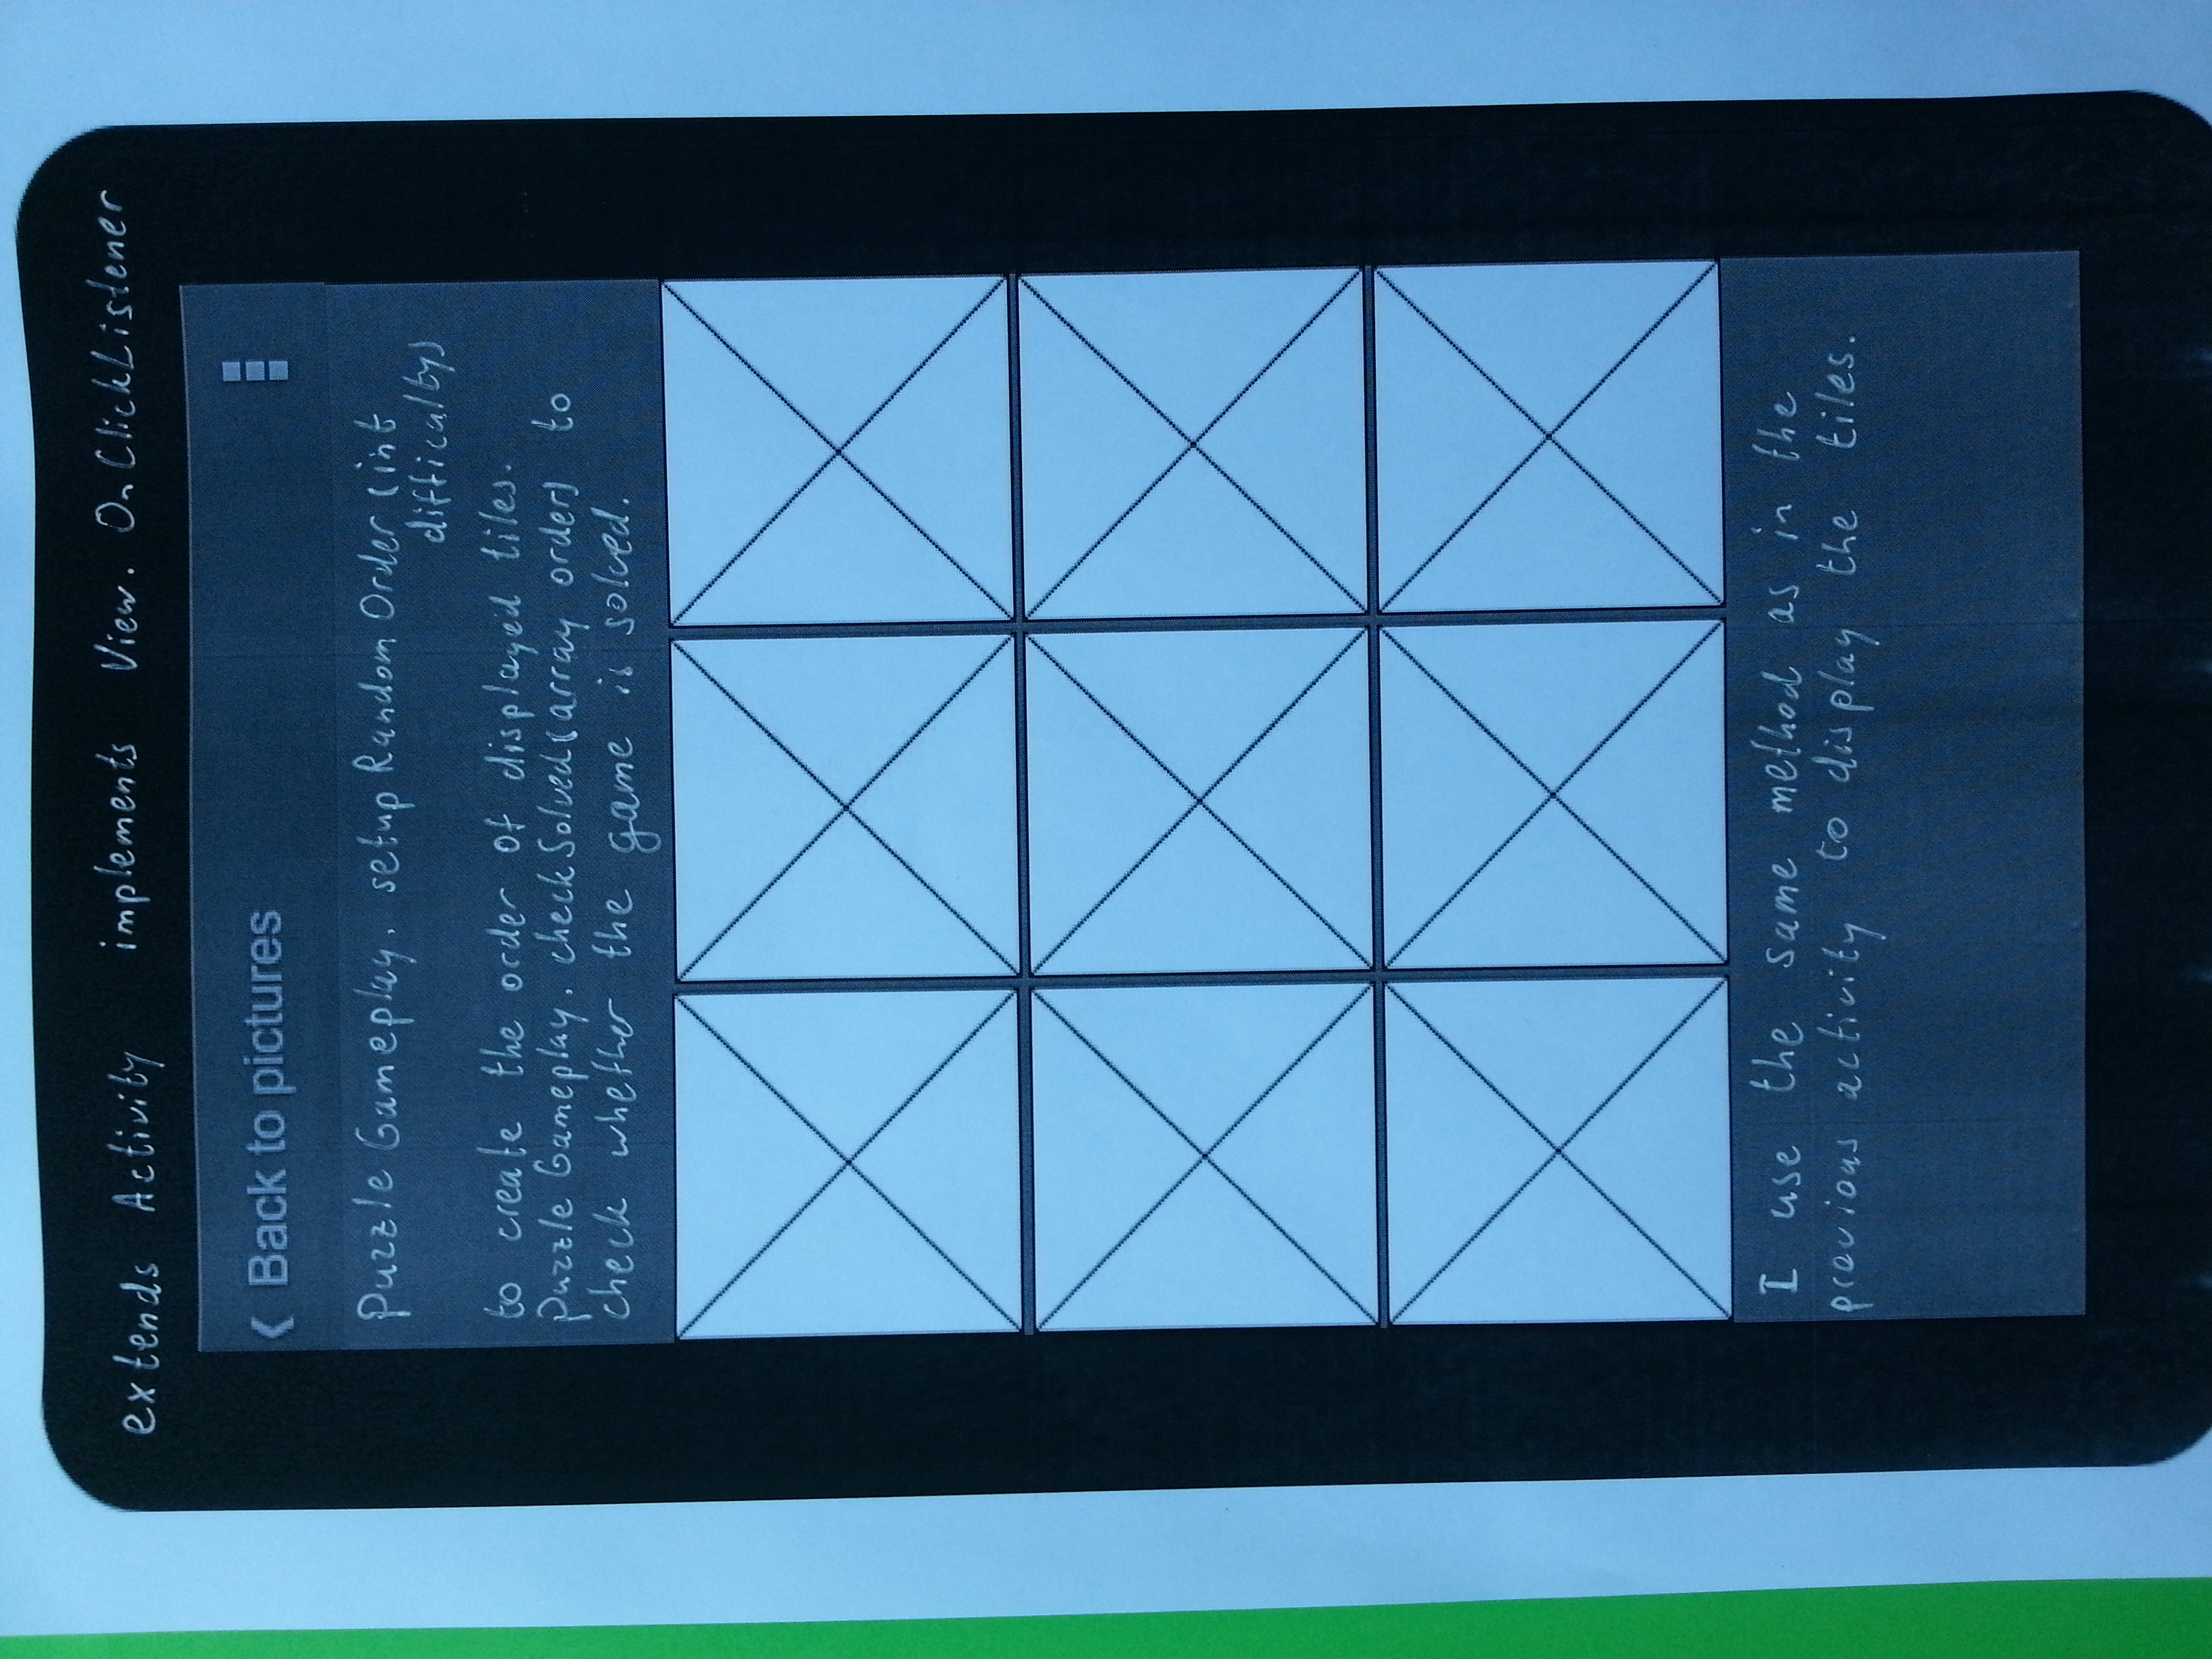 extends Activity implements View. OnClickListener
‹ Back to pictures
Puzzle Gameplay. setup Random Order (int
difficulty)
to create the order of displayed tiles.
Puzzle Gameplay. check Solved (array order) to
check whether the game is solved.
I use the same method as in the
previous activity to display the tiles.